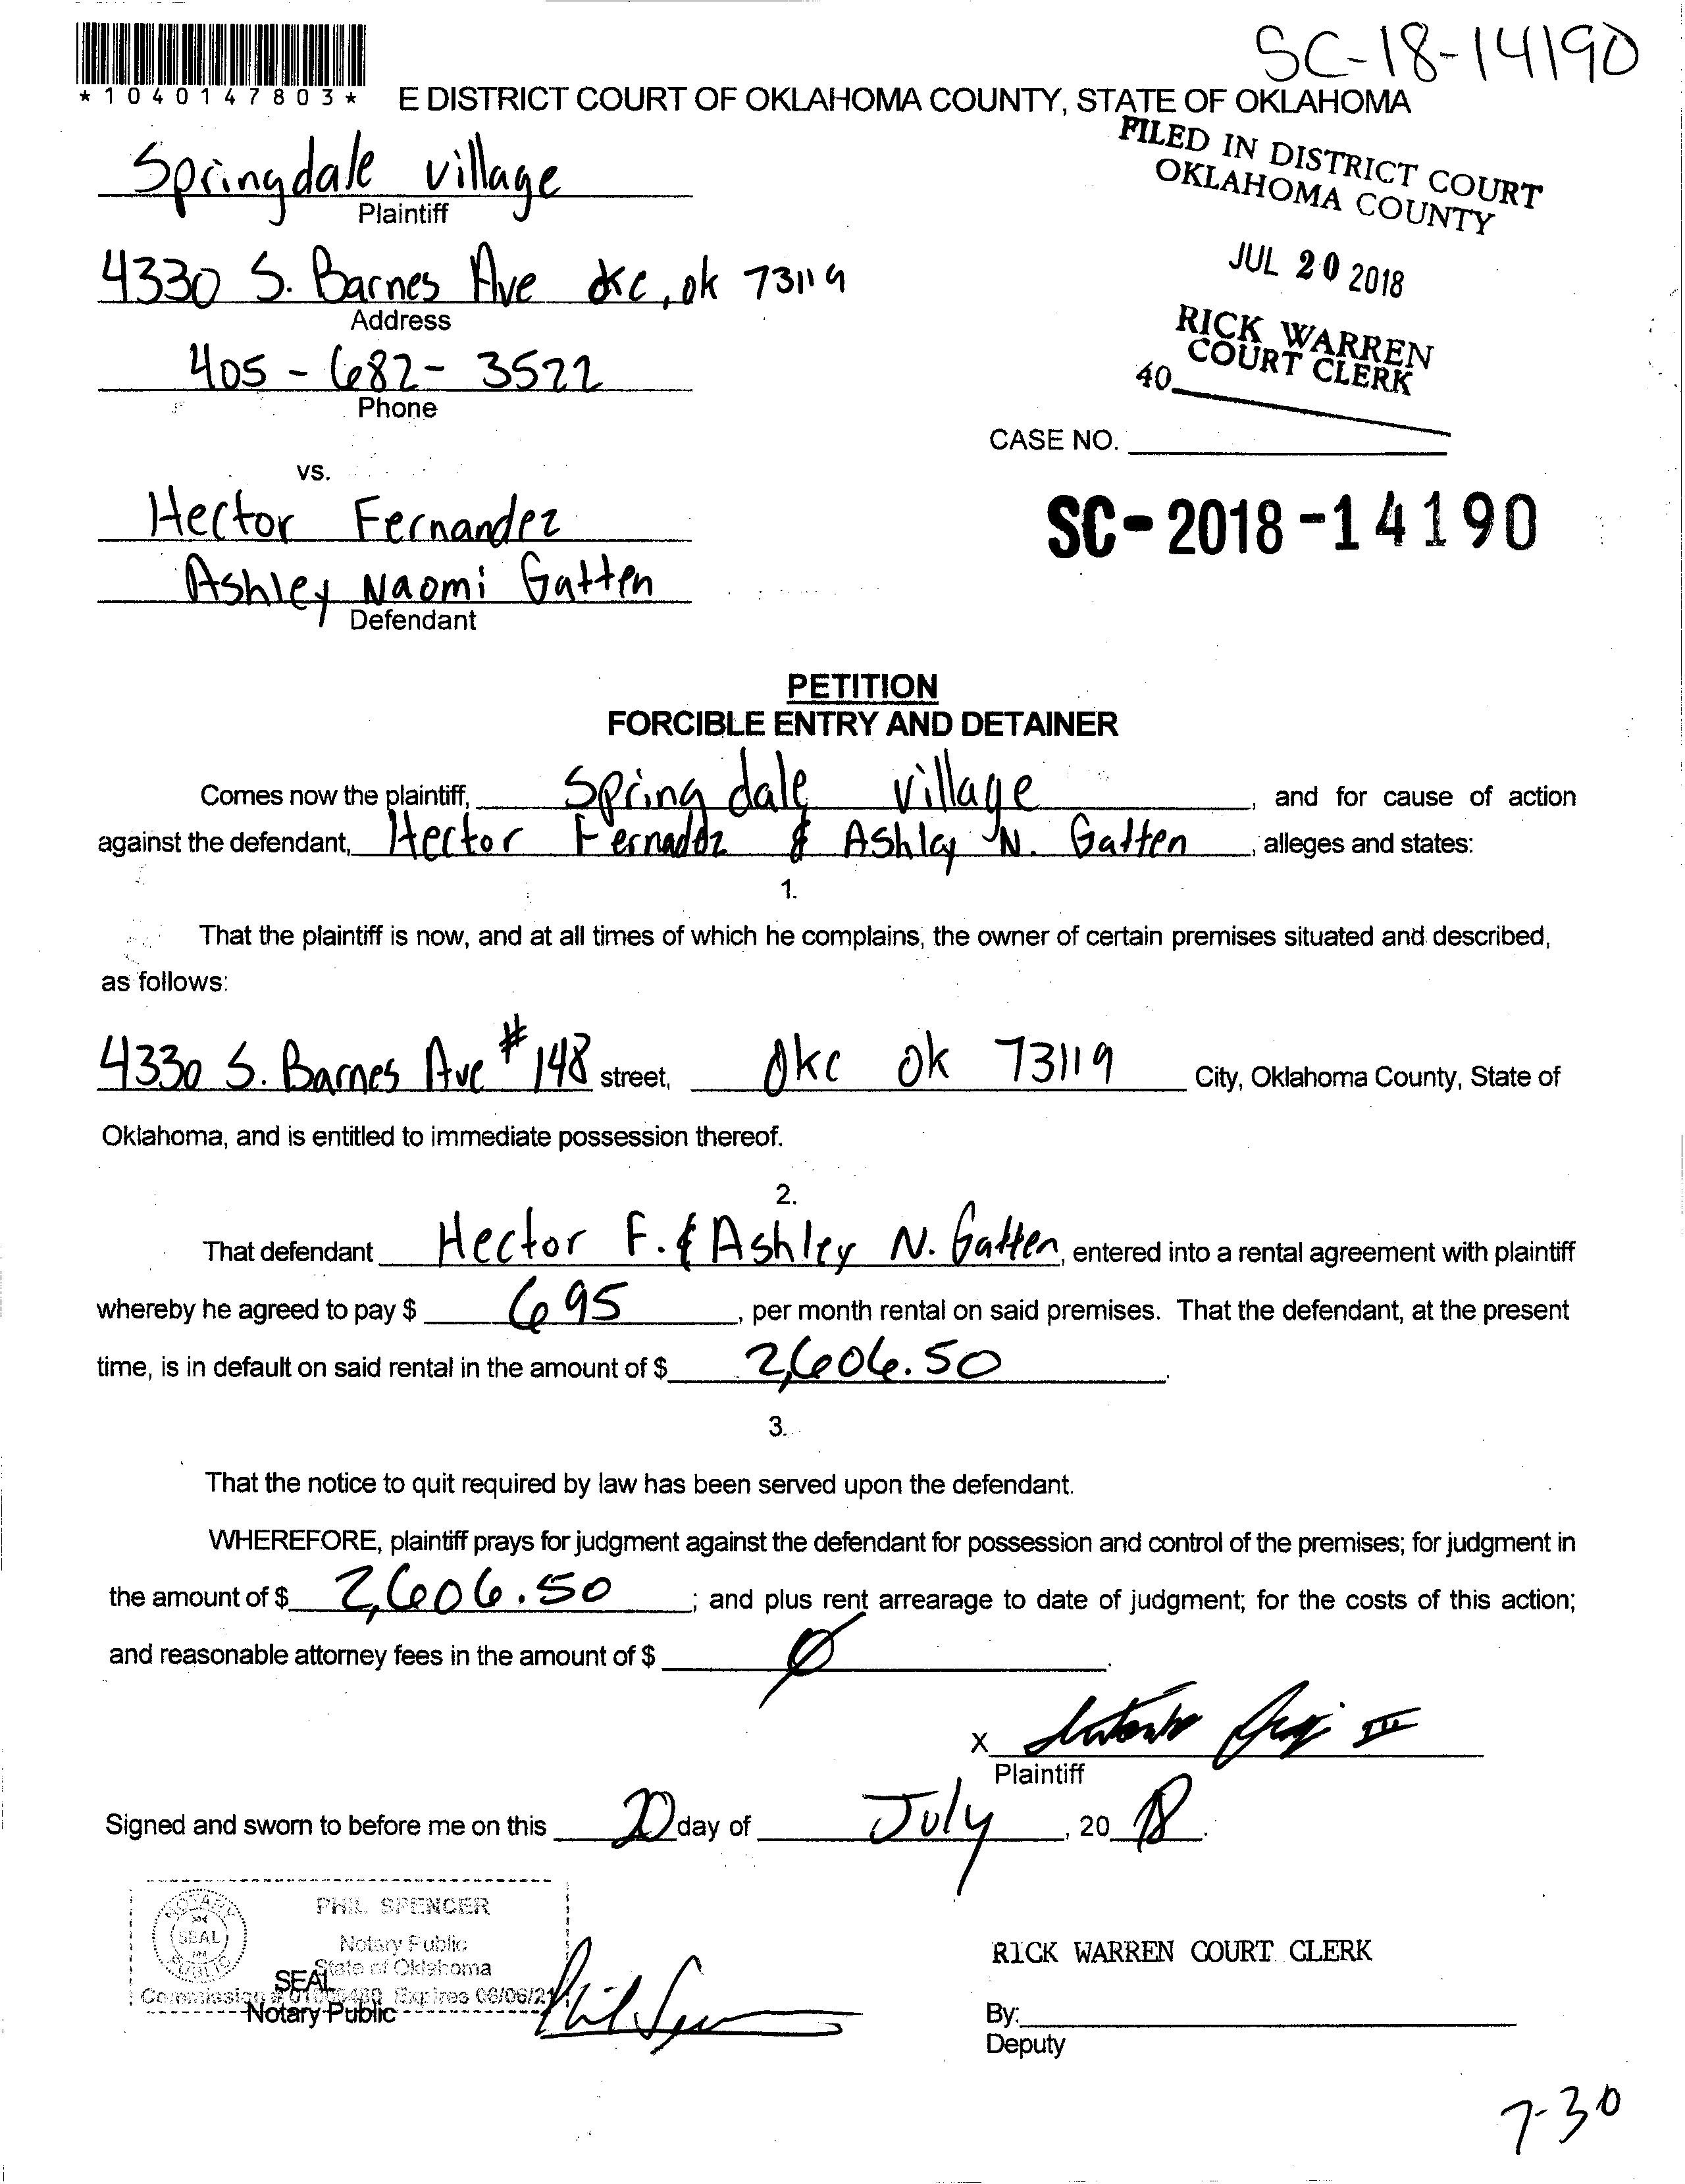 SC-18-14190
*1040147803*
E DISTRICT COURT OF OKLAHOMA COUNTY, STATE OF OKLAHOMA
FILED IN DISTRICT COURT
OKLAHOMA COUNTY
Springdale village
Plaintiff
JUL 20 2018
4330 S. Barnes Ave okc, ok 73119
Address
RICK WARREN
COURT CLERK
405-682-3522
Phone
40
CASE NO.
vs.
SC-2018-14190
Hector Fernandez
Ashley Naomi Gatten
Defendant
PETITION
FORCIBLE ENTRY AND DETAINER
Comes now the plaintiff, Spring dale village, and for cause of action
against the defendant, Hector Fernadez & Ashley N. Gatten, alleges and states:
1.
That the plaintiff is now, and at all times of which he complains, the owner of certain premises situated and described,
as follows:
4330 S. Barnes Ave #148 street, Okc ok 73119 City, Oklahoma County, State of
Oklahoma, and is entitled to immediate possession thereof.
2.
That defendant Hector F. & Ashley N. Gatten, entered into a rental agreement with plaintiff
whereby he agreed to pay $ 695, per month rental on said premises. That the defendant, at the present
time, is in default on said rental in the amount of $ 2,606.50.
3.
That the notice to quit required by law has been served upon the defendant.
WHEREFORE, plaintiff prays for judgment against the defendant for possession and control of the premises; for judgment in
the amount of $ 2,606.50; and plus rent arrearage to date of judgment; for the costs of this action;
and reasonable attorney fees in the amount of $ 0.
X III
Plaintiff
Signed and sworn to before me on this 20 day of July, 2018.
PHIL SPENCER
Notary Public
State of Oklahoma
NOTARY SEAL PUBLIC
Commission # Expires 06/06/21
SEAL
Notary Public
Phil Spencer
RICK WARREN COURT CLERK
By:
Deputy
7-30